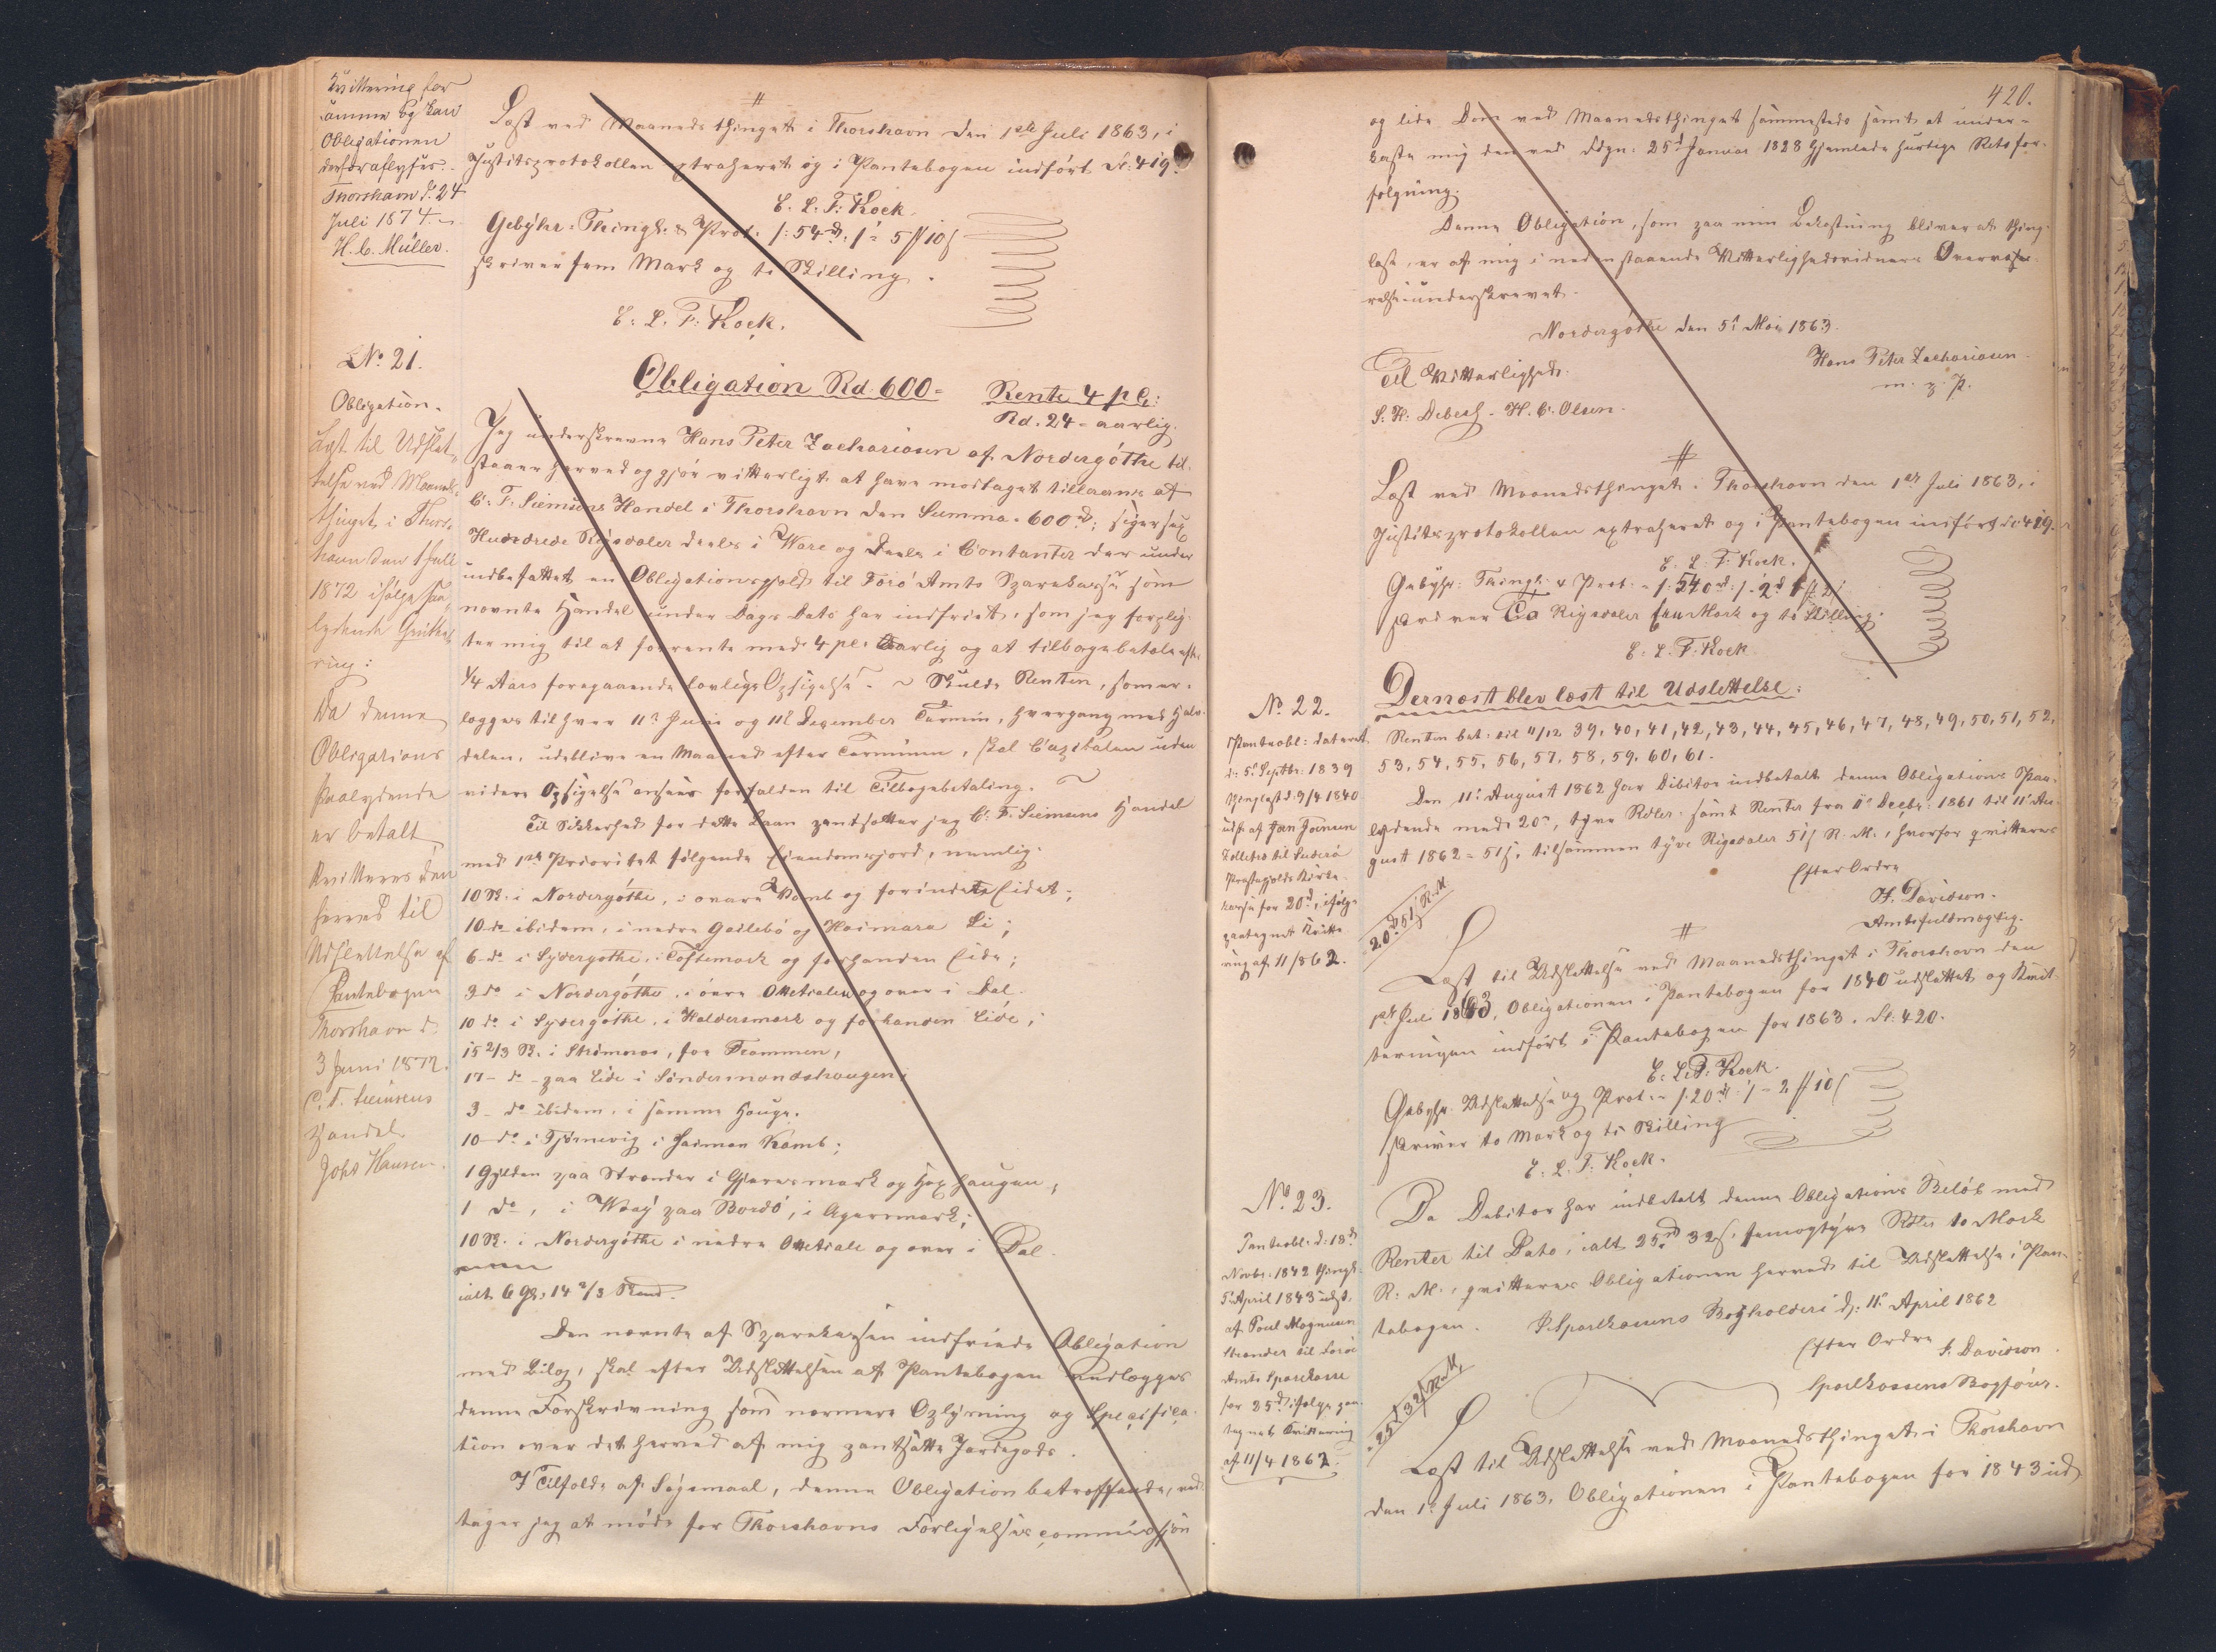 Qvittering for
samme og kan
Obligationen
derfor aflyses.
Thorshavn d. 24
Juli 1874.
H. C. Müller.
Læst ved Maanedsthinget i Thorshavn den 1ste Juli 1863, i
Justitsprotokollen extraheret og i Pantebogen indført Fol. 419.
E. L. F. Kock.
Gebyhr: Thingl. & Prot. /: 54 rd. /: = 5 # 10 ß
skriver fem Mark og ti Skilling.
E. L. F. Kock.
No. 21.
Obligation.
Læst til Udslet-
telse ved Maaneds-
thinget i Thors-
havn den 1 Juli
1872 ifølge saa-
lydende Qvitte-
ring:
Da denne
Obligations
Paalydende
er betalt
kvitteres den
herved til
Udslettelse af
Pantebogen
Thorshavn d.
3 Juni 1872.
C. F. Siemsens
Handel
Johs Hansen.
Obligation Rd 600 = Rente 4 p C:
Rd. 24 = aarlig.
Jeg underskrevne Hans Peter Zachariasen af Nordergøthe til-
staaer herved og gjør vitterligt at have modtaget tillaans af
C. F. Siemsens Handel i Thorshavn den Summa 600 rd; siger sex
Hundrede Rigsdaler deels i Vare og deels i Contanter der under
indbefattet en Obligationsgjeld til Færø Amts Sparekasse som
nævnte Handel under Dags Dato har indfriet, som jeg forplig-
ter mig til at forrente med 4 pC. aarlig og at tilbagebetale efter
1/4 Aars foregaaende lovlige Opsigelse. ~ Skulde Renten, som er-
lægges til hver 11te Juni og 11te December Termin, hvergang med Halv-
delen, udeblive en Maaned efter Terminen, skal Capitalen uden
videre Opsigelse ansees forfalden til Tilbagebetaling. ~
Til Sikkerhed for dette Laan pantsætter jeg C. F. Siemsens Handel
med 1ste Prioritet følgende Eiendomsjord, nemlig:
10 Sk. i Nordergøthe, i ovare Kamb og forindete Eidet;
10 do ibidem, i nedre Gadlebø og Heimara Li;
6 do i Sydergøthe, i Toftemark og forhanden Eide;
3 do i Nordergøthe, i øvre Ottetiale og over i Dal.
10 do i Sydergøthe, i Haldersmark og forhanden Eide;
15 2/3 Sk. i Strømnæs, for Frammen,
17 do paa Eide i Søndermandshaugen;
3 do ibidem, i samme Hauge.
10 do i Tjørnevig i Heimen Kamb;
1 Gylden paa Strander i Gjæresmark og Høghaugen,
1 do, i Waag paa Bordø, i Agersmark;
10 Sk. i Nordergøthe i nedre Ottetiale og over i Dal.
ialt 6 Gl. 14 2/3 Skind.
Den nævnte af Sparekassen indfriede Obligation
med Bilag, skal efter Udslettelsen af Pantebogen vedlægges
denne Forskrivning som nærmere Oplysning og Specifica-
tion over det herved af mig pantsatte Jordegods.
I Tilfælde af Søgsmaal, denne Obligation betreffende, ved-
tager jeg at møde for Thorshavns Forligelsescommission
420.
og lide Dom ved Maanedsthinget sammesteds samt at under-
kaste mig den ved Fdgn: 25de Januar 1828 hjemlede hurtige Retsfor-
følgning.
Denne Obligation, som paa min Bekostning bliver at thing-
læse, er af mig i nedenstaaende Vitterlighedsvidners Overvæ-
relse underskrevet.
Nordergøthe den 5te Mai 1863.
Hans Peter Zachariasen
m. p. P.
Til Vitterlighed:
S. H. Debess. H. C. Olsen.
Læst ved Maanedsthinget i Thorshavn den 1ste Juli 1863, i
Justitsprotokollen extraheret og i Pantebogen indført Fol. 419.
E. L. F. Kock.
Gebyhr: Thingl. & Prot. = /: 540 rd: /
skriver To Rigsdaler Mark og to Skilling.
E. L. F. Kock
Dernæst blev læst til Udslettelse:
No. 22.
Panteobl: dateret
d: 5te Septbr. 1839
thinglæst d. 9/4 1840
udst. af Jan Joensen
til Suderø
Præstegjelds Kirke-
kasse for 20 rd, ifølge
paategnet Kvitte-
ring af 11/8 62.
Renten bet. til 11/12 39, 40, 41, 42, 43, 44, 45, 46, 47, 48, 49, 50, 51, 52,
53, 54, 55, 56, 57, 58, 59, 60, 61.
Den 11te August 1862 har Debitor indbetalt denne Obligations Paa-
lydende med 20 rd, tyve Rdlr. samt Renter fra 11te Decbr. 1861 til 11te Au-
gust 1862 = 51 ß, tilsammen tyve Rigsdaler 51 ß R. M., hvorfor qvitteres
Efter Ordre
H. Davidsen.
Amtsfuldmægtig.
20 rd 51 ß R. M.
Læst til Udslettelse ved Maanedsthinget i Thorshavn den
1ste Juli 1863, Obligationen i Pantebogen for 1840 udslettet og Kvit-
teringen indført i Pantebogen for 1863. Fol: 420.
E. L. F. Kock.
Gebyhr. Udslettelse og Prot. = /: 20 rd: / = 2 # 10 ß
skriver to Mark og ti Skilling
E. L. F. Kock.
No. 23.
Panteobl. d: 18de
Novbr. 1842 thingl.
5te April 1843 udst.
af Poul Magnusen
Strander til Færøe
Amts Sparekasse
for 25 rd, ifølge paa-
tegnet Kvittering
af 11/4 1862.
Da Debitor har indbetalt denne Obligations Beløb med
Renter til Dato, ialt 25 rd 32 ß, femogtyve Rdlr to Mark
R. M., qvitteres Obligationen herved til Udslettelse i Pan-
tebogen. Sparekassens Bogholderi d: 11te April 1862
Efter Ordre
H. Davidsen.
Sparekassens Bogfører.
25 rd 32 ß R. M.
Læst til Udslettelse ved Maanedsthinget i Thorshavn
den 1ste Juli 1863. Obligationen i Pantebogen for 1843 ud-